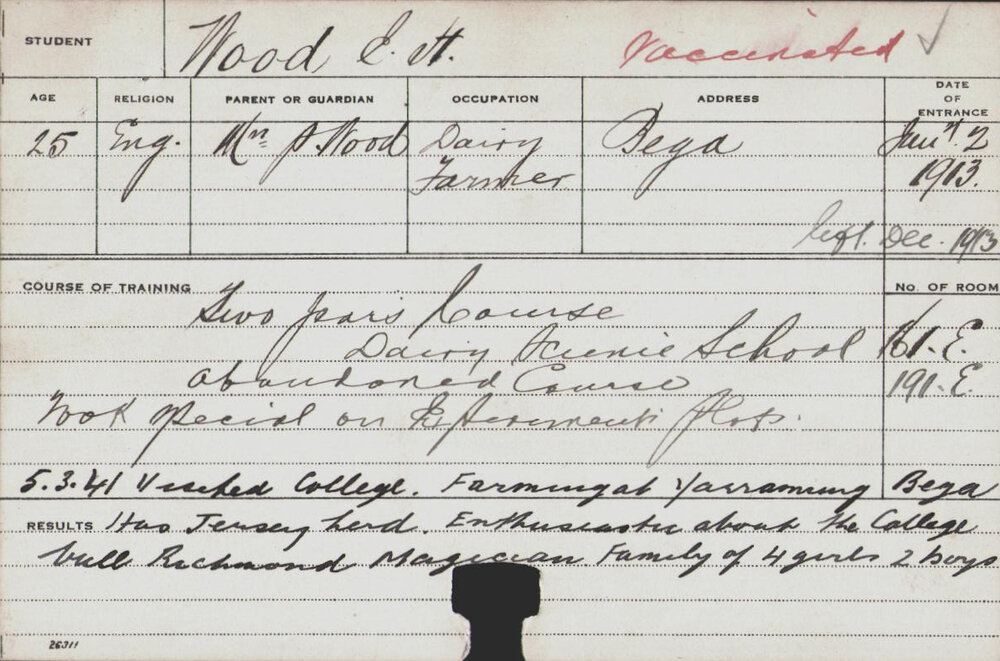 STUDENT Wood, E. H. Vaccinated ✓
AGE RELIGION PARENT OR GUARDIAN OCCUPATION ADDRESS DATE OF ENTRANCE
25 Eng. J. Wood Dairy Bega 2
Farmer 1913.
Left. Dec. 1913
COURSE OF TRAINING NO. OF ROOM
Two years Course
Dairy Science School 161. E.
abandoned Course 191. E.
Took special on Experiment plots.
5.3.41 Visited College. Farming at Yarramung Bega
RESULTS Has Jersey herd. Enthusiastic about the College
bull Richmond Magician Family of 4 girls 2 boys
26311